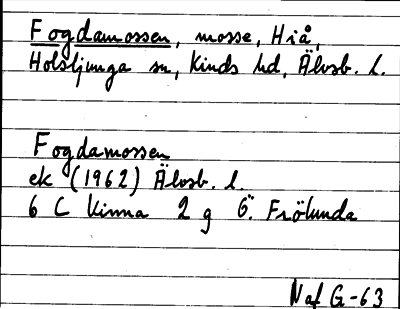 Fogdamossen, mosse, Hiå,
Holsljunga sn, Kinds hd, Älvsb. l.
Fogdamossen
ek (1962) Älvsb. l.
6 C Kinna 2 g Ö. Frölunda
Naf G-63